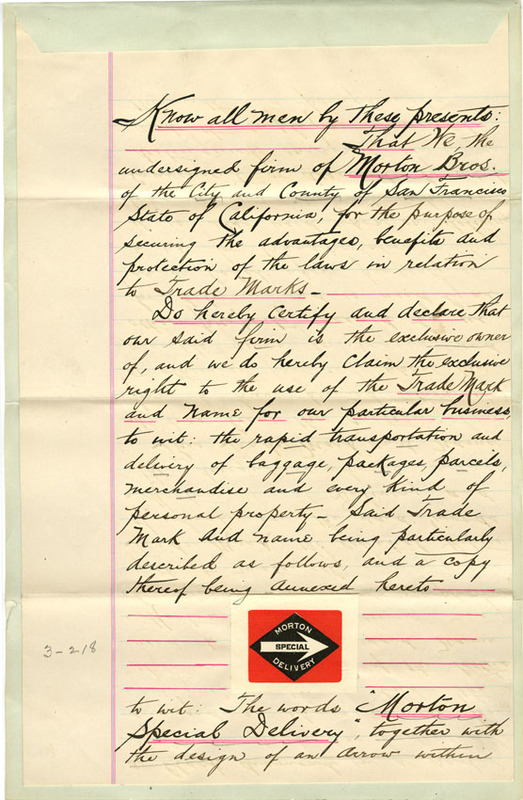 Know all men by these presents:
That We, the
undersigned firm of Morton Bros.
of the City and County of San Francisco
State of California, for the purpose of
securing the advantages, benefits and
protection of the laws in relation
to Trade Marks_
Do hereby certify and declare that
our said firm is the exclusive owner
of, and we do hereby claim the exclusive
right to the use of the Trade Mark
and name for our particular business,
to wit: the rapid transportation and
delivery of baggage, packages, parcels,
merchandise and every kind of
personal property_ Said Trade
Mark and name being particularly
described as follows, and a copy
thereof being annexed hereto
MORTON
SPECIAL
DELIVERY
3-218
to wit: The words "Morton
Special Delivery", together with
the design of an arrow within